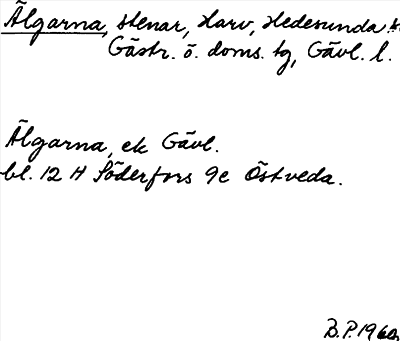 Älgarna, stenar, Harv, Hedesunda
Gästr. ö. doms. tg, Gävl. l.
Älgarna, ek Gävl.
bl. 12 H Söderfors 9e Östveda.
B.P. 1960